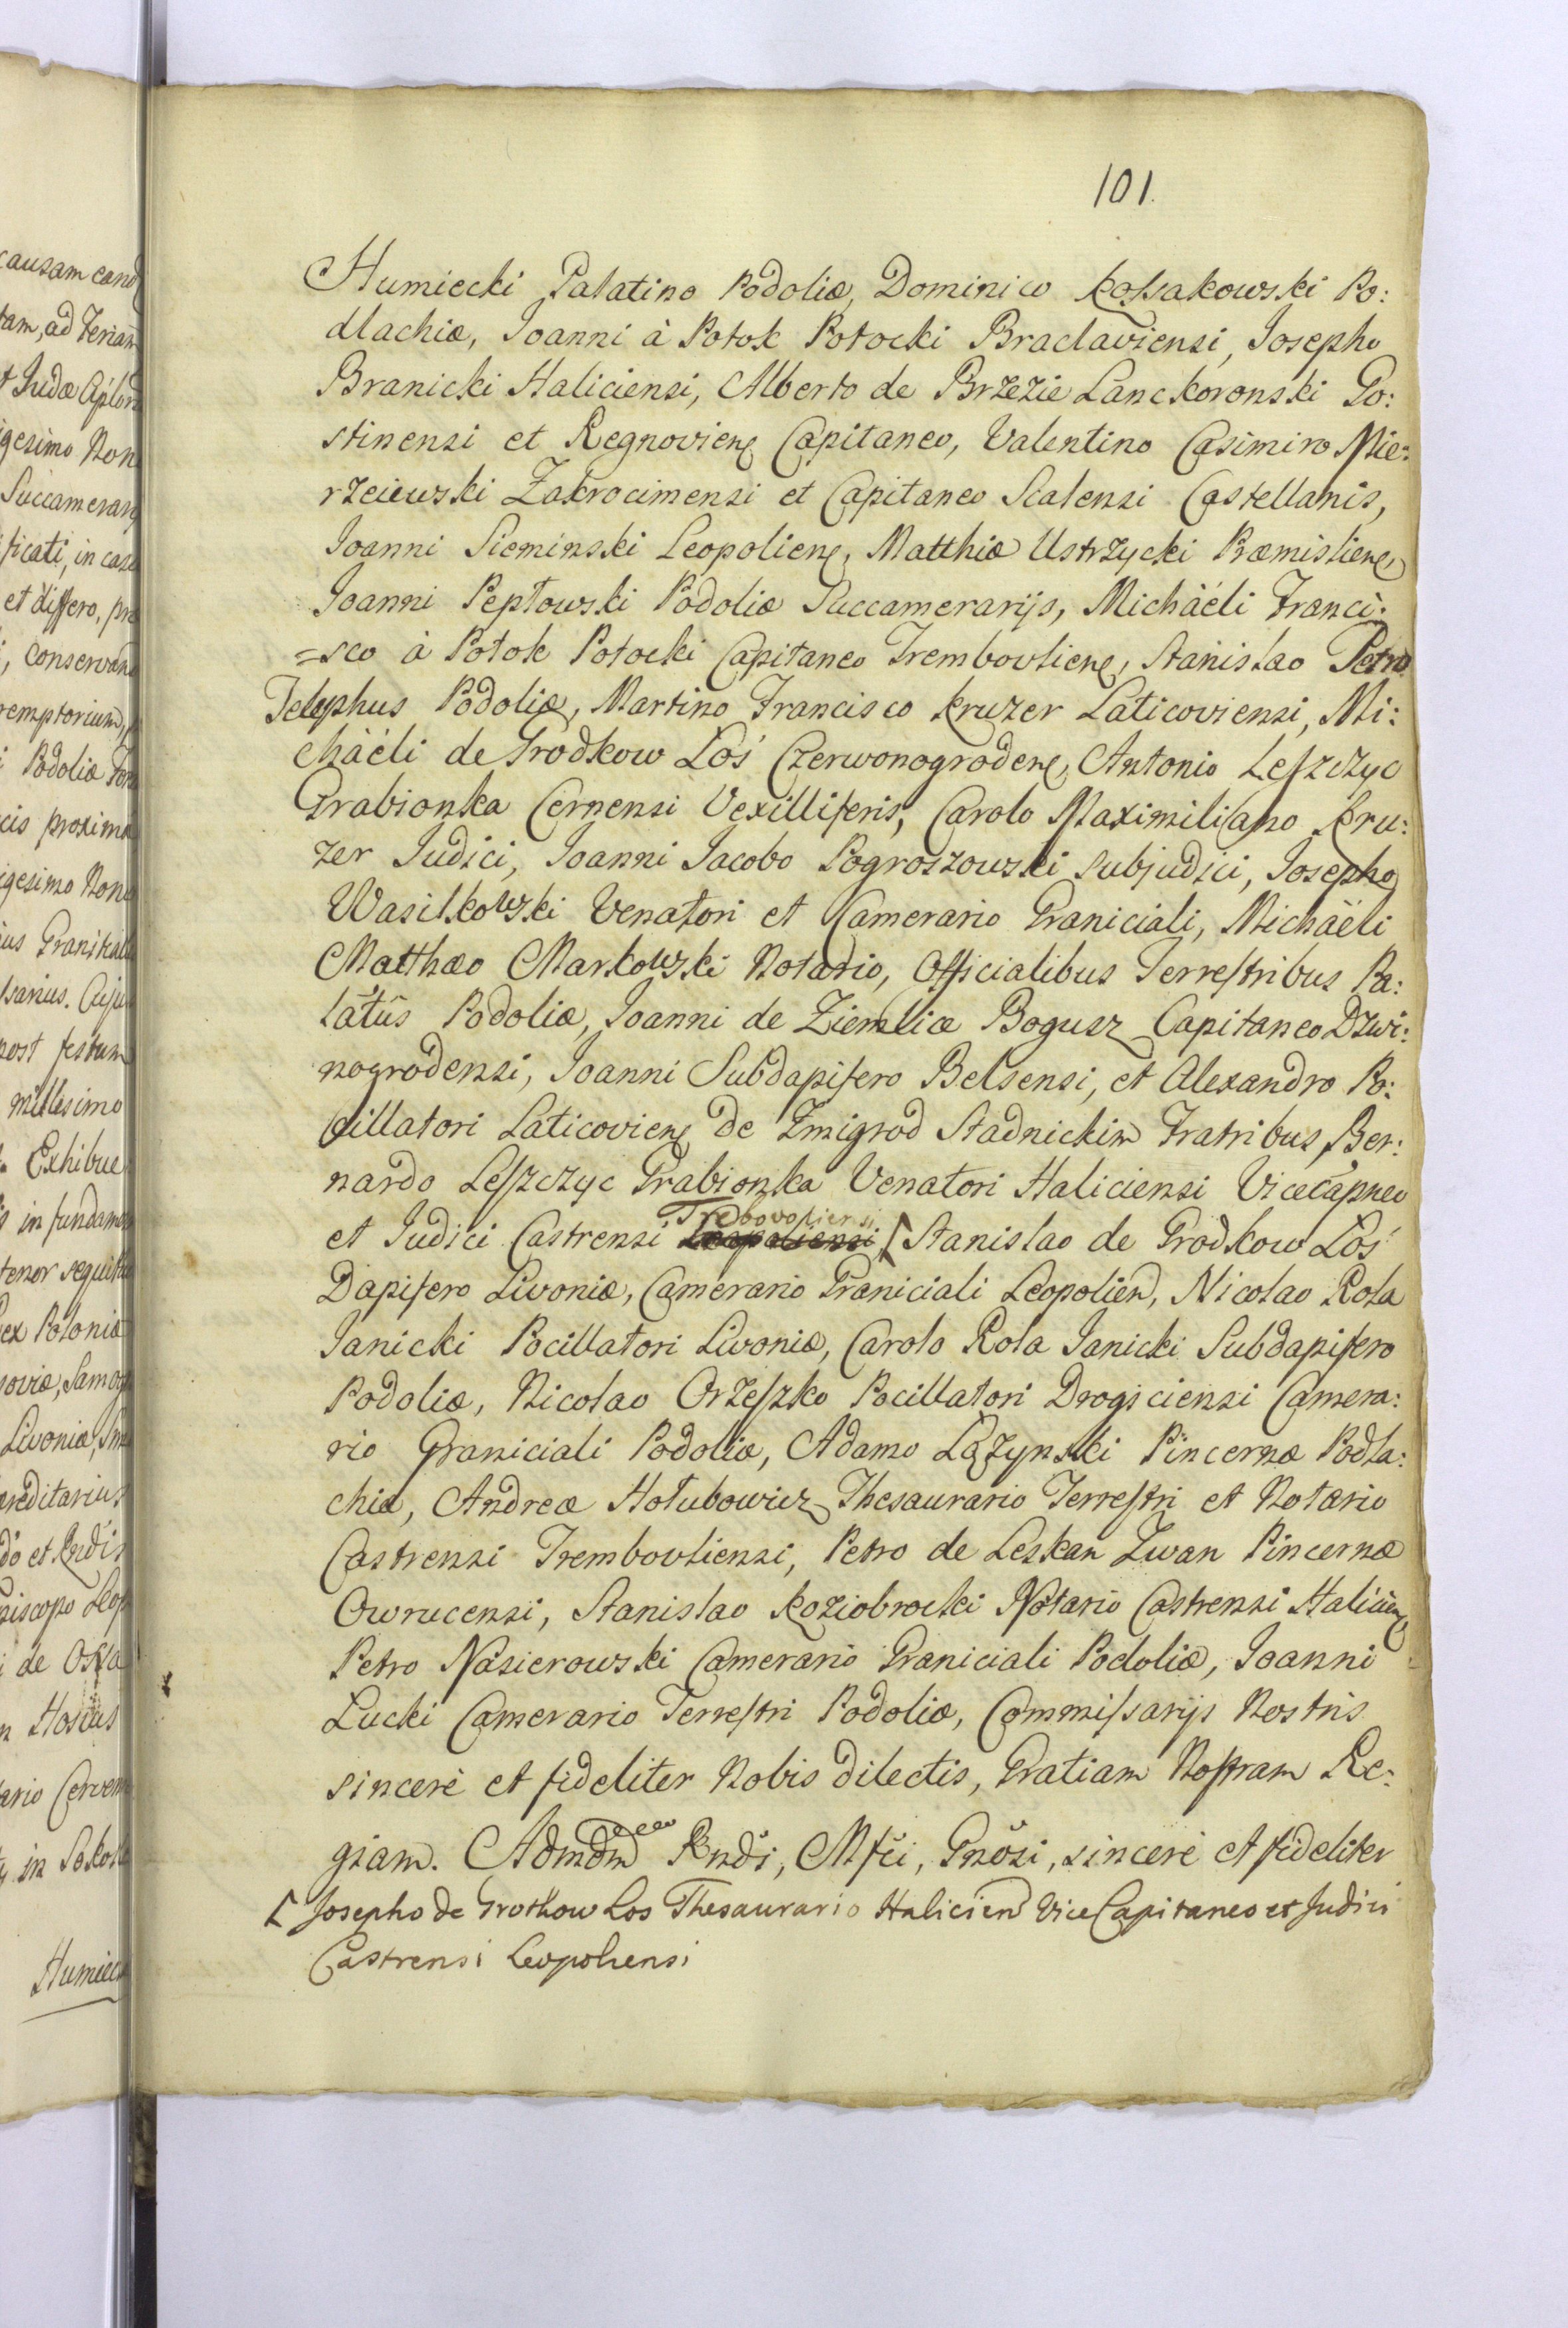 101.
Humiecki Palatino Podoliæ, Dominico Kossakowski Po:
dlachiæ, Joanni à Potok Potocki Braclaviensi, Josepho
Branicki Haliciensi, Alberto de Brzezie Lanckoronski Go:
stinensi et Regnoviens Capitaneo, Valentino Casimiro Mie:
rzeiewski Zakrocimensi et Capitaneo Scalensi Castellanis,
Joanni Sieminski Leopoliens, Matthiæ Ustrzycki Præmisliens,
Joanni Peptowski Podoliæ Succamerarijs, Michäéli Franci:
=sco à Potok Potocki Capitaneo Trembovliens, Stanislao Petro
Telephus Podoliæ, Martino Francisco Kruzer Laticoviensi, Mi:
chäéli de Grodkow Łoś Czerwonogrodens, Antonio Leszczyc
Grabionka Cernensi Vexilliferis, Carolo Maximiliano Kru:
zer Judici, Joanni Jacobo Pogroszowski Subjudici, Josepho
Wasilkowski Venatori et Camerario Graniciali, Michäéli
Matthæo Markowski Notario, Officialibus Terrestribus Pa:
latûs Podoliæ, Joanni de Ziemlice Bogusz Capitaneo Dzwi:
nogrodensi, Joanni Subdapifero Belsensi, et Alexandro Po:
cillatori Laticoviens de Zmigrod Stadnickim Fratribus, Ber:
nardo Leszczyc Grabionka Venatori Haliciensi Vicecapneo
Trebovoliensi
et Judici Castrensi Leopoliensi [ Stanislao de Grodkow Łoś
Dapifero Livoniæ, Camerario Graniciali Leopolien, Nicolao Rola
Janicki Pocillatori Livoniæ, Carolo Rola Janicki Subdapifero
Podoliæ, Nicolao Orzeszko Pocillatori Drogiciensi Camera:
rio Graniciali Podoliæ, Adamo Łążynski Pincernæ Podla:
chiæ, Andreæ Hołubowicz Thesaurario Terrestri et Notario
Castrensi Trembovliensi, Petro de Leskan Zwan Pincernæ
Owrucensi, Stanislao Koziobrocki Notario Castrensi Haliciens
Petro Nasierowski Camerario Graniciali Podoliæ, Joanni
Lucki Camerario Terrestri Podoliæ, Commissarijs Nostris
sincerè et fideliter Nobis dilectis, Gratiam Nostram Re:
giam. Admdm Rndi, Mfci, Gnosi, sincerè et fideliter
[ Josepho de Grotkow Los Thesaurario Halicien Vice Capitaneo et Judici
Castrensi Leopoliensi